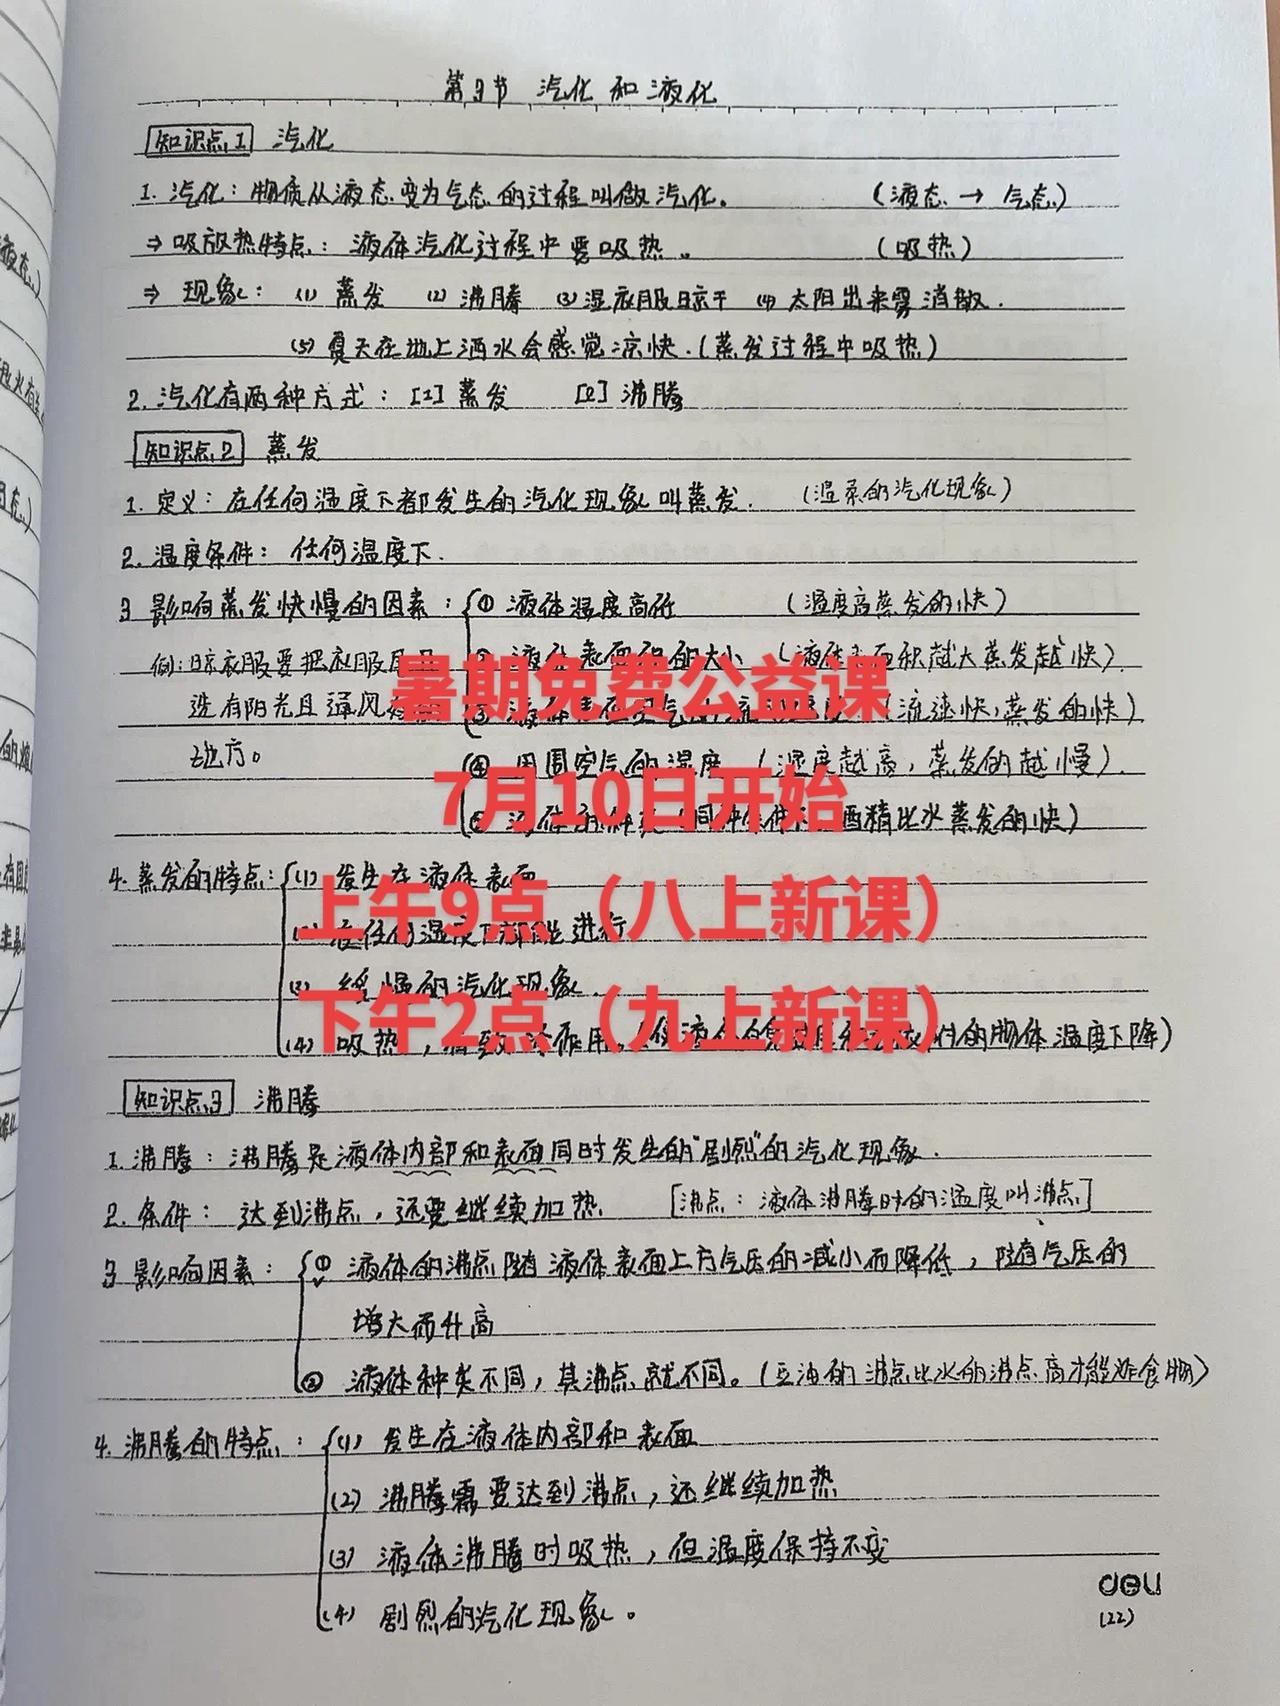 第3节 汽化和液化
知识点1 汽化
1. 汽化：物质从液态变为气态的过程叫做汽化。 （液态 → 气态）
⇒ 吸放热特点：液体汽化过程中要吸热。 （吸热）
⇒ 现象：(1) 蒸发 (2) 沸腾 (3) 湿衣服晾干 (4) 太阳出来雾消散.
(5) 夏天在地上洒水会感觉凉快.(蒸发过程中吸热)
2. 汽化有两种方式：[1] 蒸发 [2] 沸腾
知识点2 蒸发
1. 定义：在任何温度下都发生的汽化现象叫蒸发. (温柔的汽化现象)
2. 温度条件：任何温度下.
3 影响蒸发快慢的因素：① 液体温度高低 (温度高蒸发的快)
例：晾衣服要把衣服
② 液体表面积的大小 (液体表面积越大蒸发越快).
选有阳光且通风
地方。
(流速快，蒸发的快)
④ 周围空气的湿度 (湿度越高，蒸发的越慢).
酒精比水蒸发的快)
暑期免费公益课
7月10日开始
上午9点（八上新课）
下午2点（九上新课）
4. 蒸发的特点：(1) 发生在液体表面
在任何温度下都能进行
(3) 缓慢的汽化现象.
(4) 吸热，的物体温度下降)
知识点3 沸腾
1. 沸腾：沸腾是液体内部和表面同时发生的"剧烈"的汽化现象.
2. 条件：达到沸点，还要继续加热 [沸点：液体沸腾时的温度叫沸点]
3 影响因素：① 液体的沸点随液体表面上方气压的减小而降低，随气压的
增大而升高
② 液体种类不同，其沸点就不同。(豆油的沸点比水的沸点高才能炸食物)
4. 沸腾的特点：(1) 发生在液体内部和表面
(2) 沸腾需要达到沸点，还继续加热
(3) 液体沸腾时吸热，但温度保持不变
(4) 剧烈的汽化现象。
deli
(22)